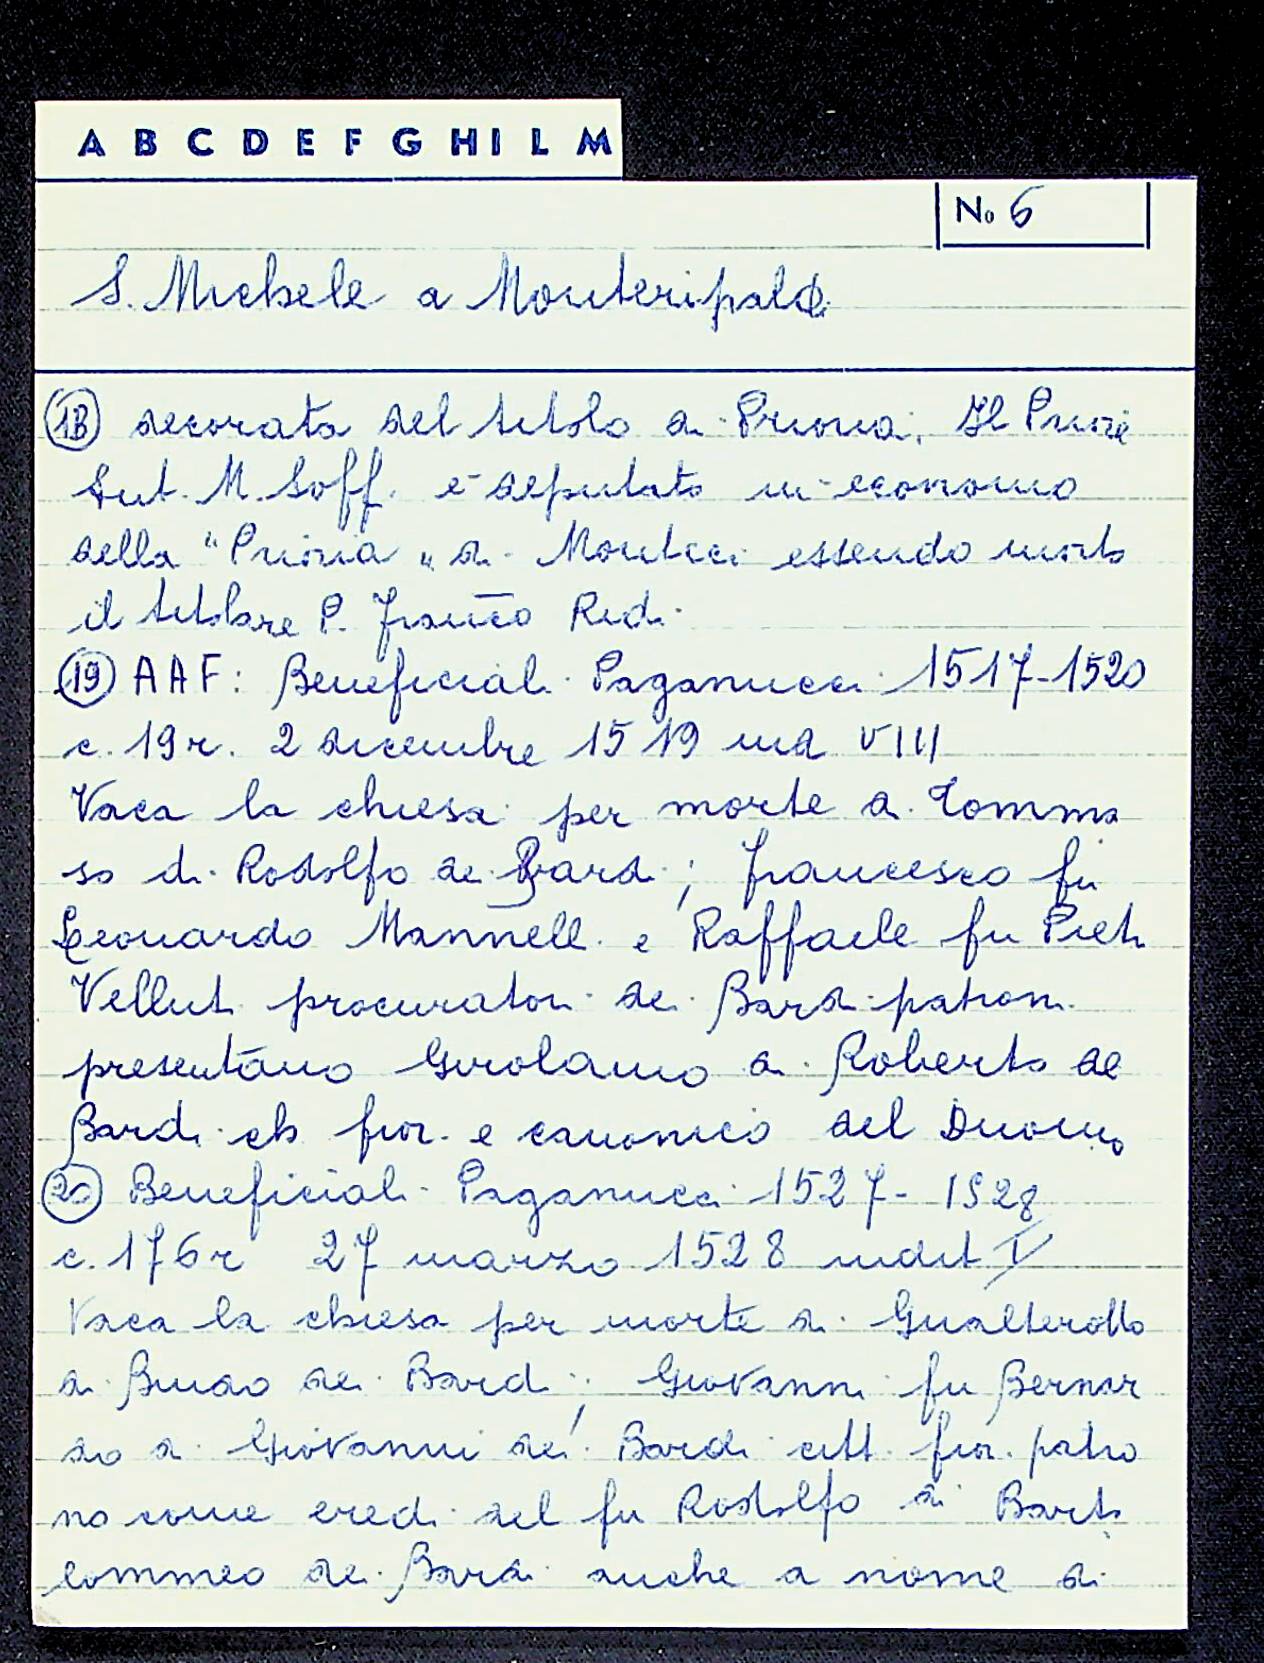 A B C D E F G H I L M
No 6
S. Michele a Monteripaldi
(18) decorata del titolo di Prioria. Il Priore
Ant. M. Soff. è deputato in economo
della "Prioria" di Monteci essendo morto
il titolare P. Franco Redi
(19) AAF: Beneficiali Paganucci 1517-1520
c. 19r. 2 dicembre 1519 ind VIII
Vaca la chiesa per morte di Tomma
so di Rodolfo de Bardi; Francesco fu
Leonardo Mannelli e Raffaele fu Piero
Velluti procuratori dei Bardi patroni
presentano Girolamo di Roberto de
Bardi ch fior. e canonico del Duomo
(20) Beneficiali Paganucci 1527-1528
c. 176r 27 marzo 1528 indit I
Vaca la chiesa per morte di Gualterotto
di Bindo dei Bardi; Giovanni fu Bernar
do di Giovanni dei Bardi citt. fior. patro
no come eredi del fu Rodolfo di Barto
lommeo dei Bardi anche a nome di